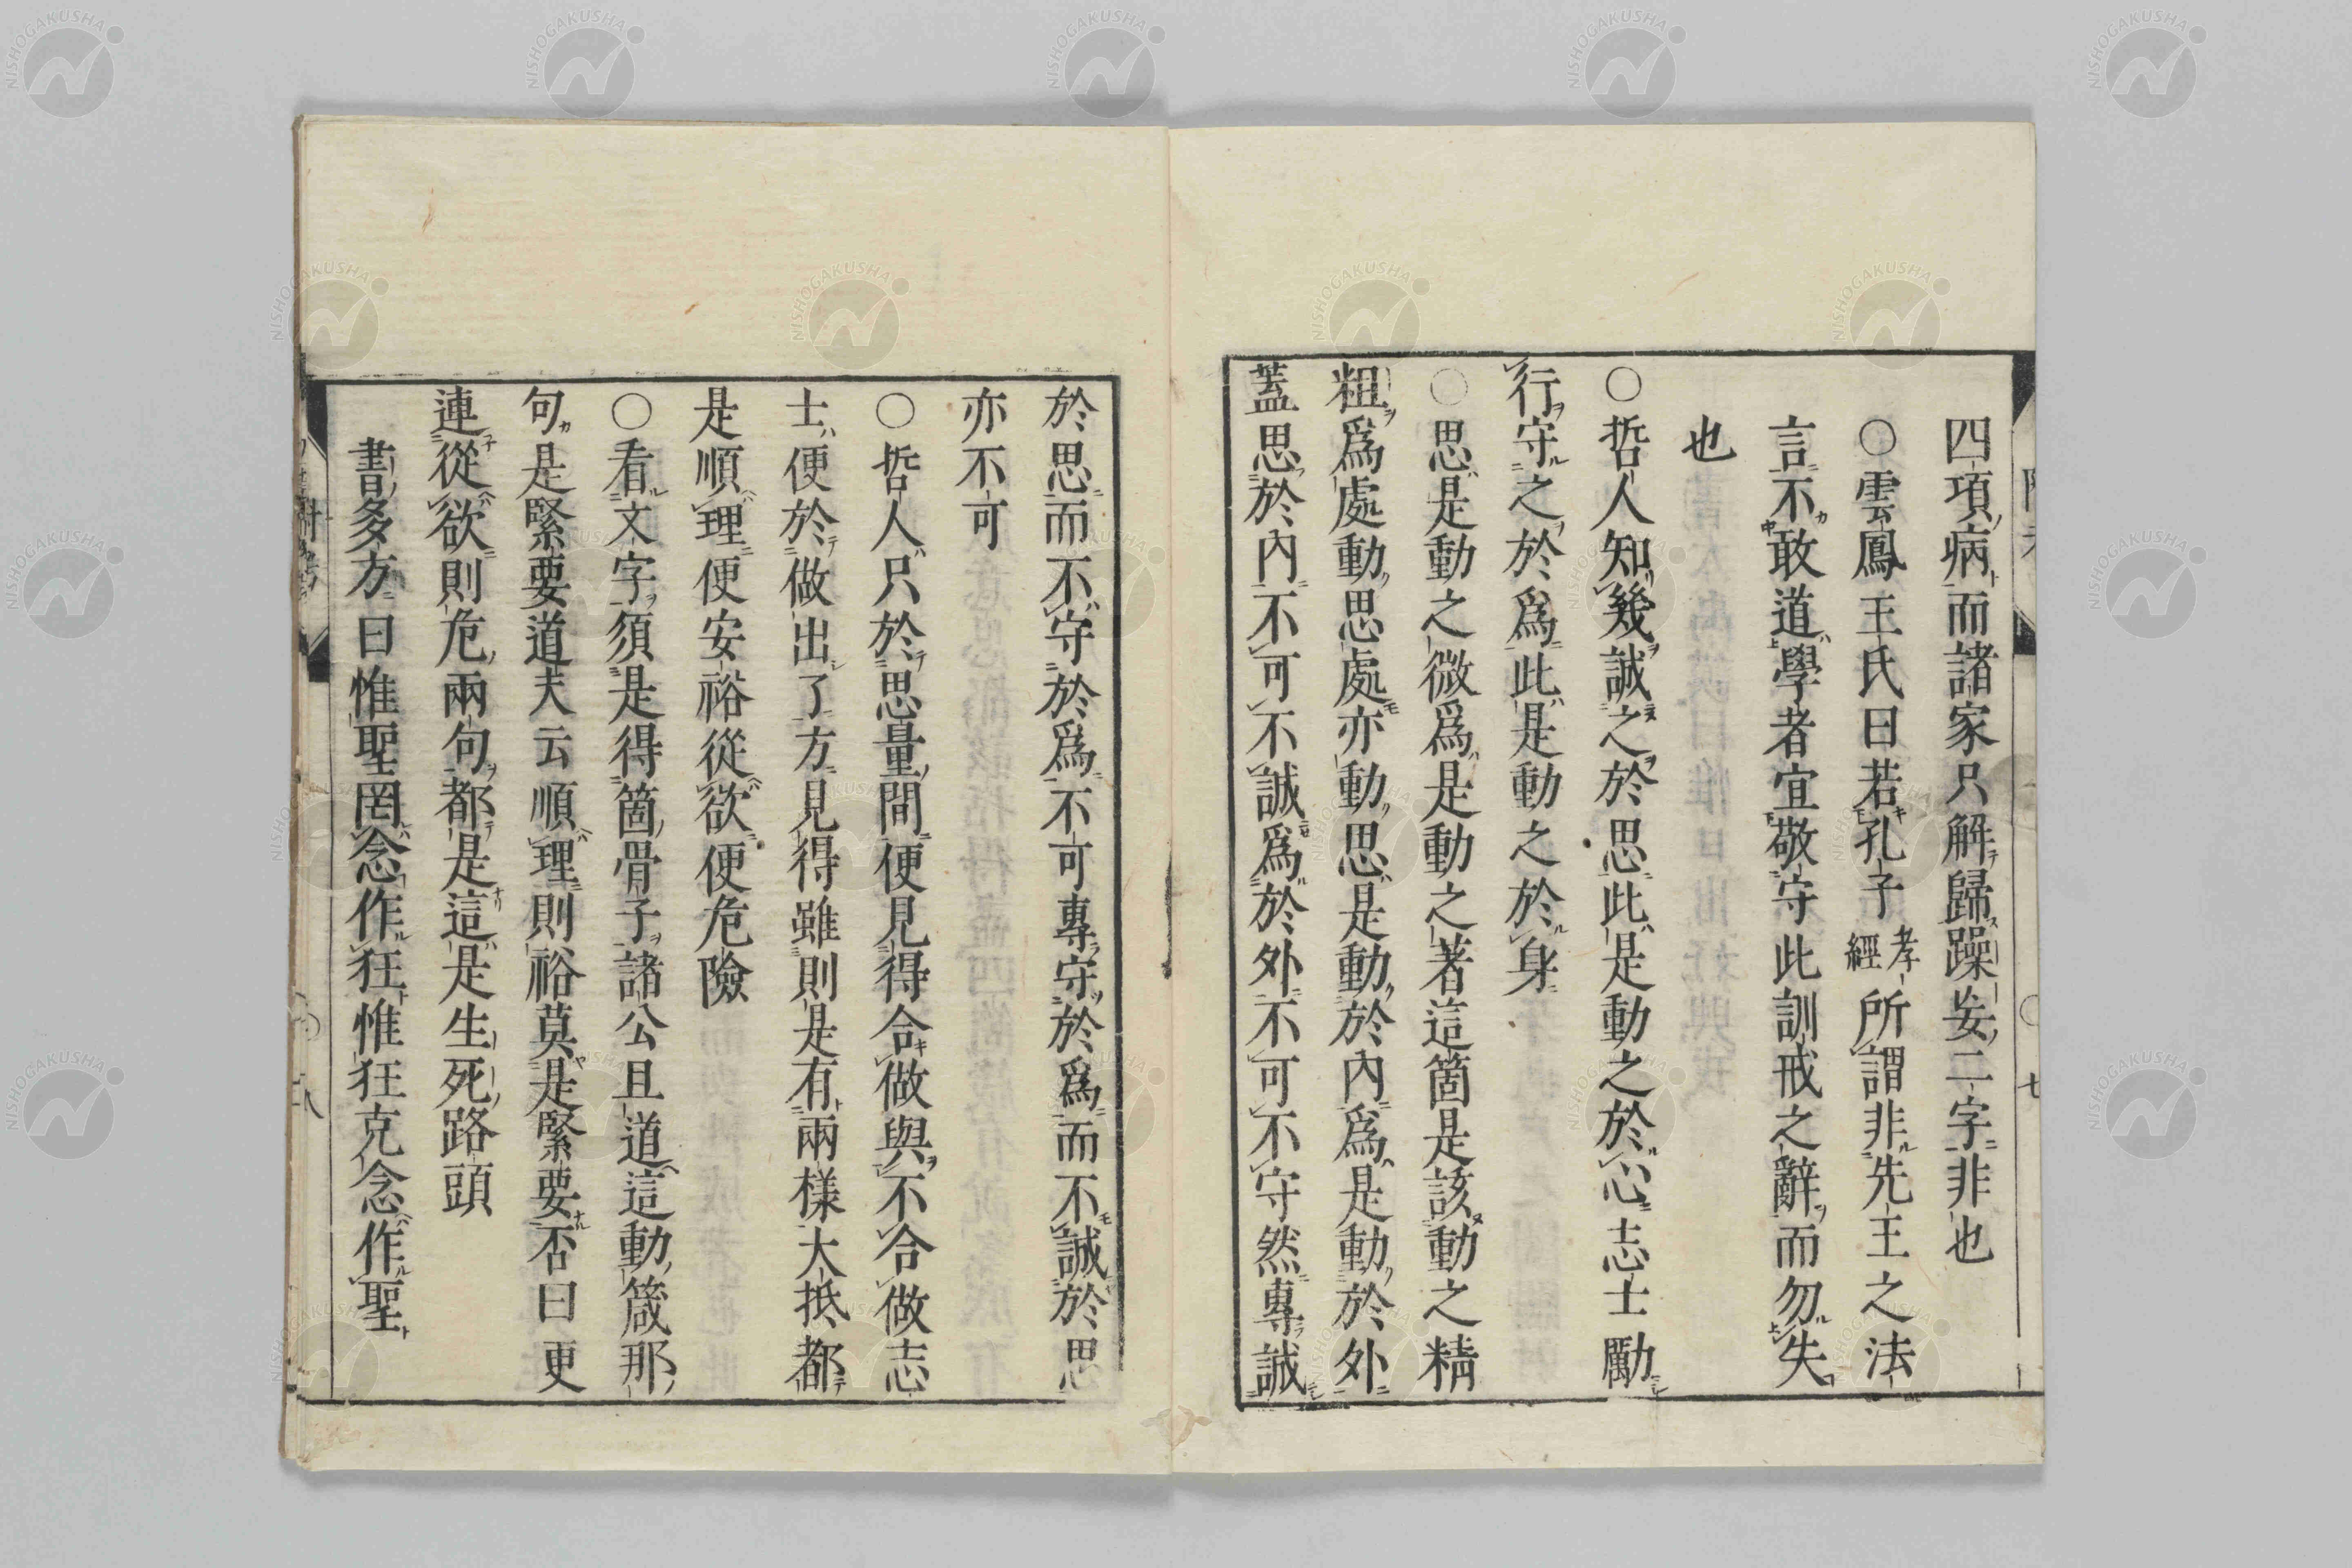 四項病而諸家只解歸躁妄二字非也
○雲鳳王氏曰若孔子孝經所謂非先王之法
言不敢道學者宜敬守此訓戒之辭而勿失
也
○哲人知幾誠之於思此是動之於心志士勵
行守之於爲此是動之於身
○思是動之微爲是動之著這箇是該動之精
粗爲處動思處亦動思是動於內爲是動於外
蓋思於內不可不誠爲於外不可不守然專誠
於思而不守於爲不可專守於爲而不誠於思
亦不可
○哲人只於思量間便見得合做與不合做志
士便於做出了方見得雖則是有兩樣大抵都
是順理便安裕從欲便危險
○看文字須是得箇骨子諸公且道這動箴那
句是緊要道夫云順理則裕莫是緊要否曰更
連從欲則危兩句都是這是生死路頭
書多方曰惟聖罔念作狂惟狂克念作聖